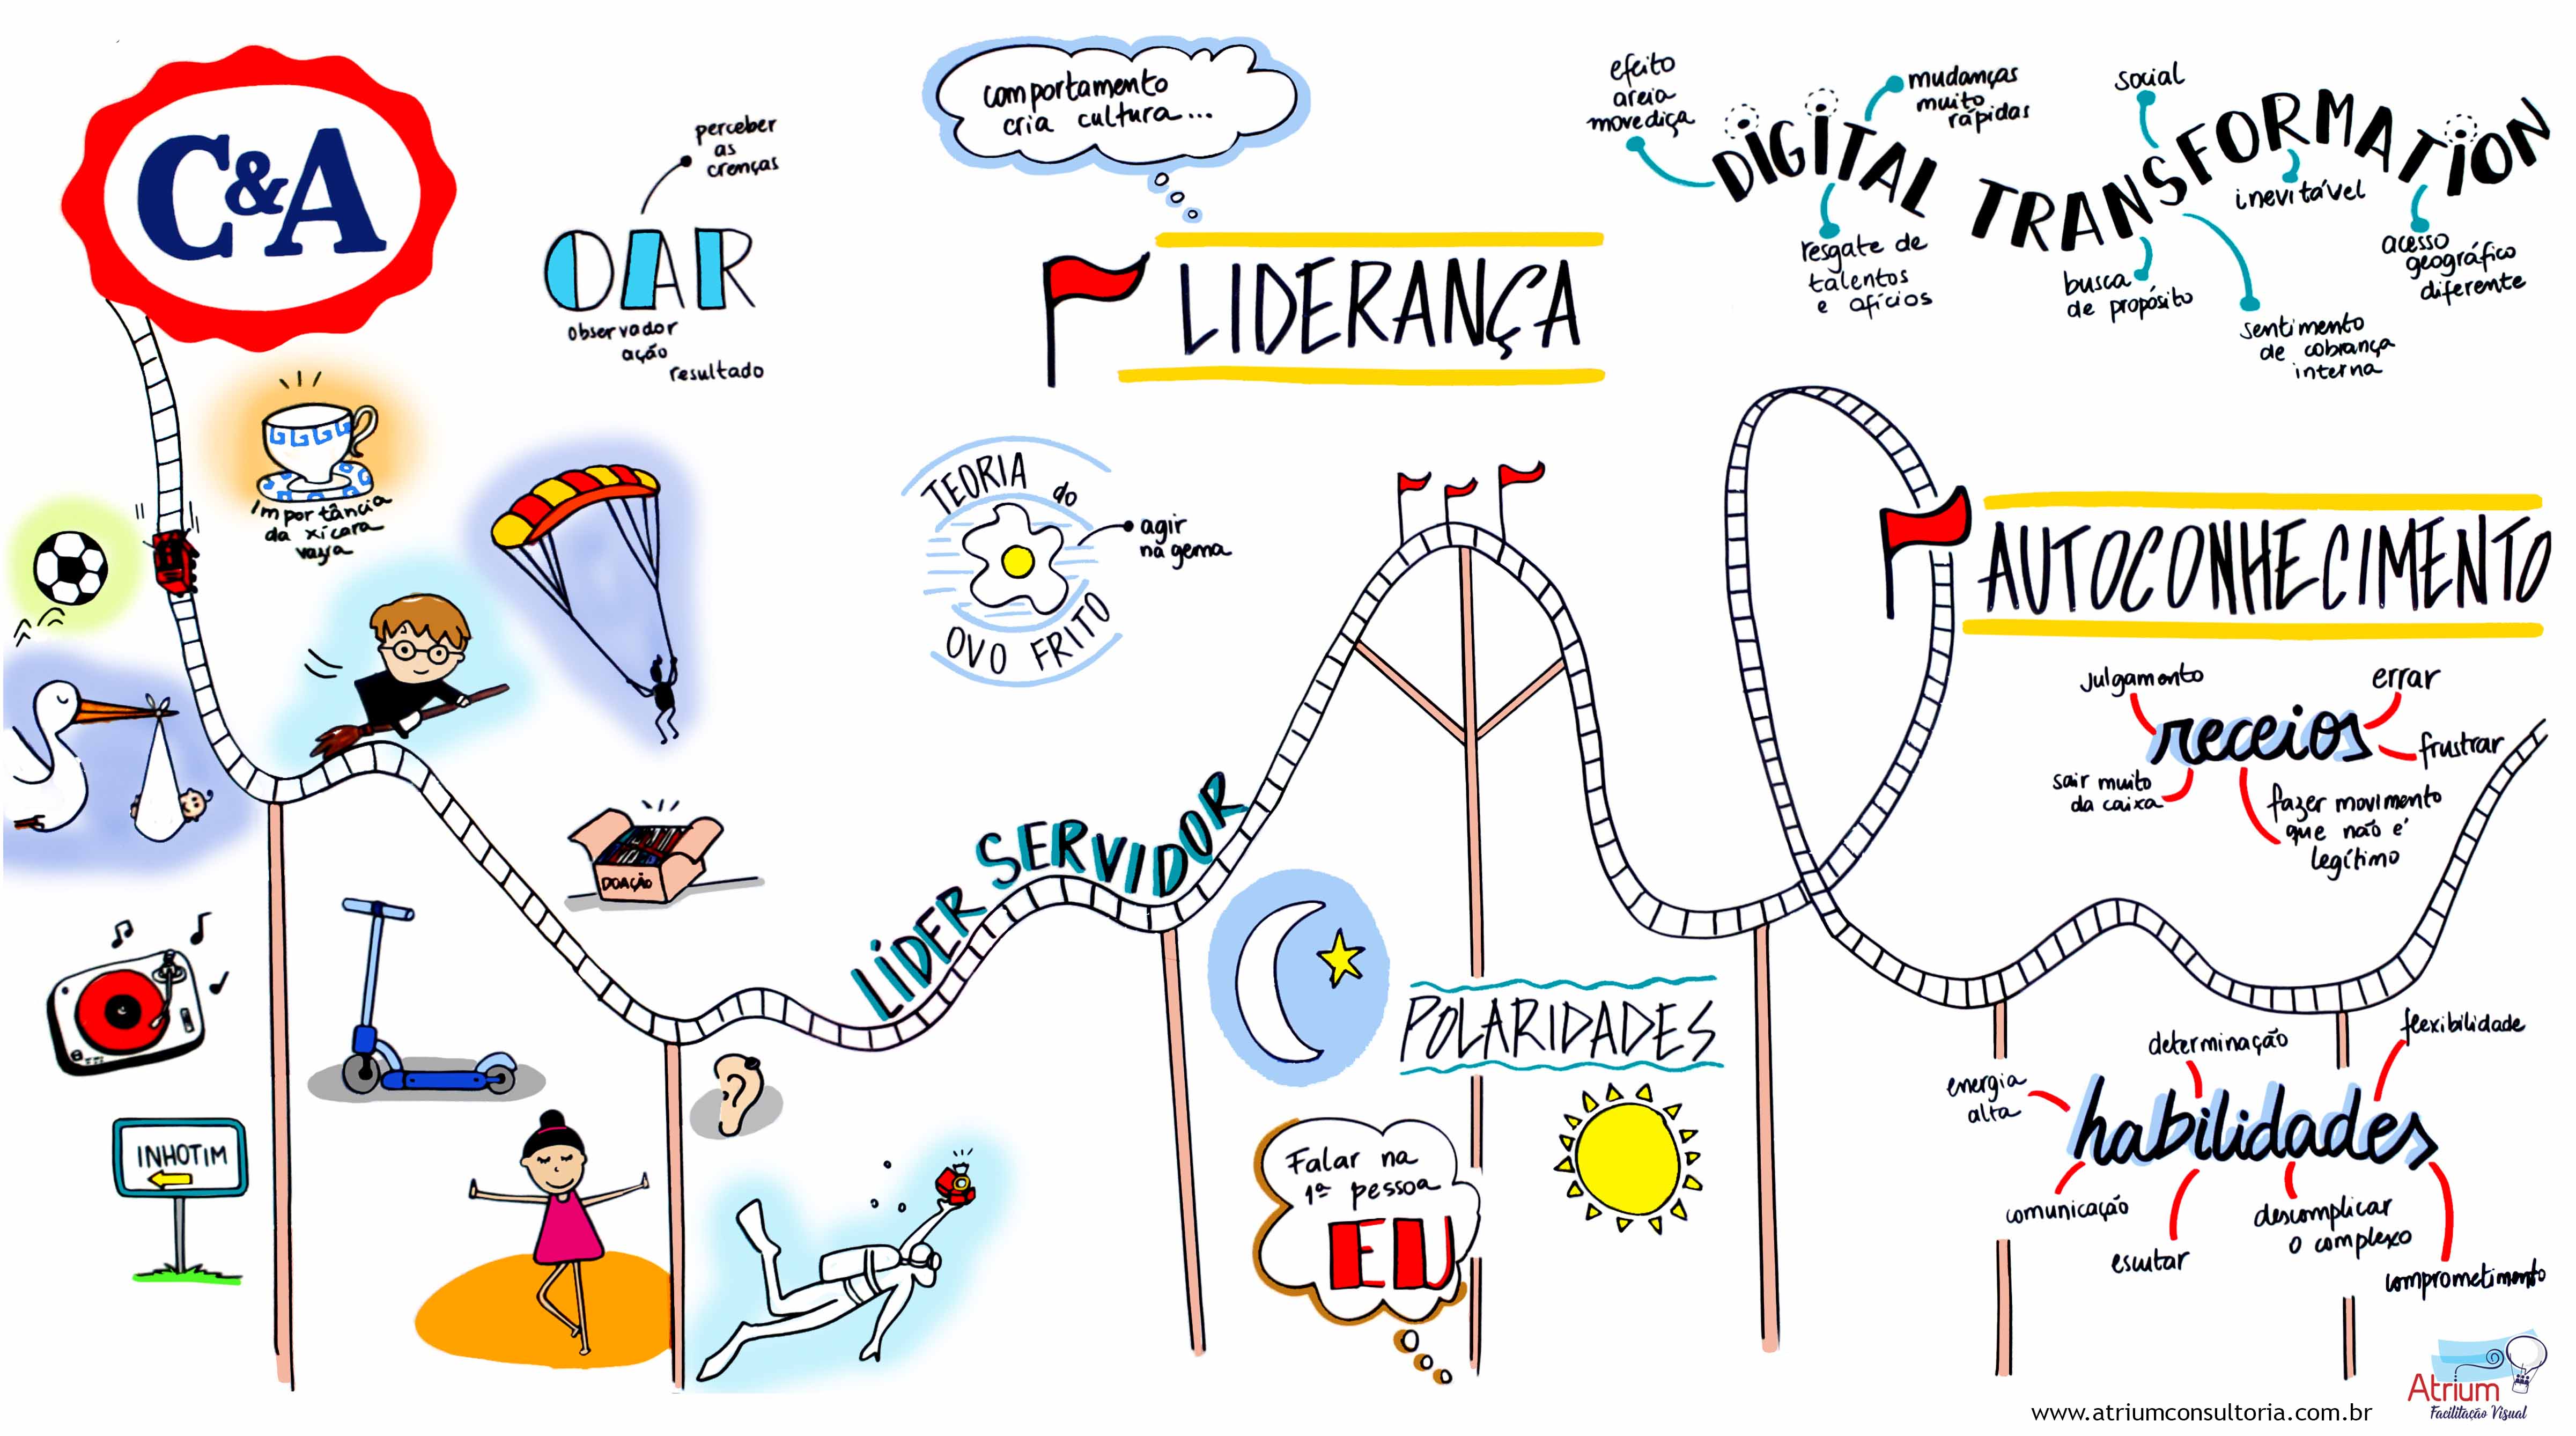 C&A
perceber
as
crenças
OAR
observador
ação
resultado
comportamento
cria cultura...
LIDERANÇA
efeito
areia
movediça
DIGITAL TRANSFORMATION
mudanças
muito
rápidas
social
inevitável
resgate de
talentos
e ofícios
busca
de propósito
sentimento
de cobrança
interna
acesso
geográfico
diferente
Importância
da xícara
vazia
TEORIA do
OVO FRITO
agir
na gema
AUTOCONHECIMENTO
julgamento
errar
receios
frustrar
sair muito
da caixa
fazer movimento
que não é
legítimo
DOAÇÃO
LÍDER SERVIDOR
POLARIDADES
INHOTIM
Falar na
1ª pessoa
EU
determinação
flexibilidade
energia
alta
habilidades
comunicação
escutar
descomplicar
o complexo
comprometimento
Atrium
Facilitação Visual
www.atriumconsultoria.com.br